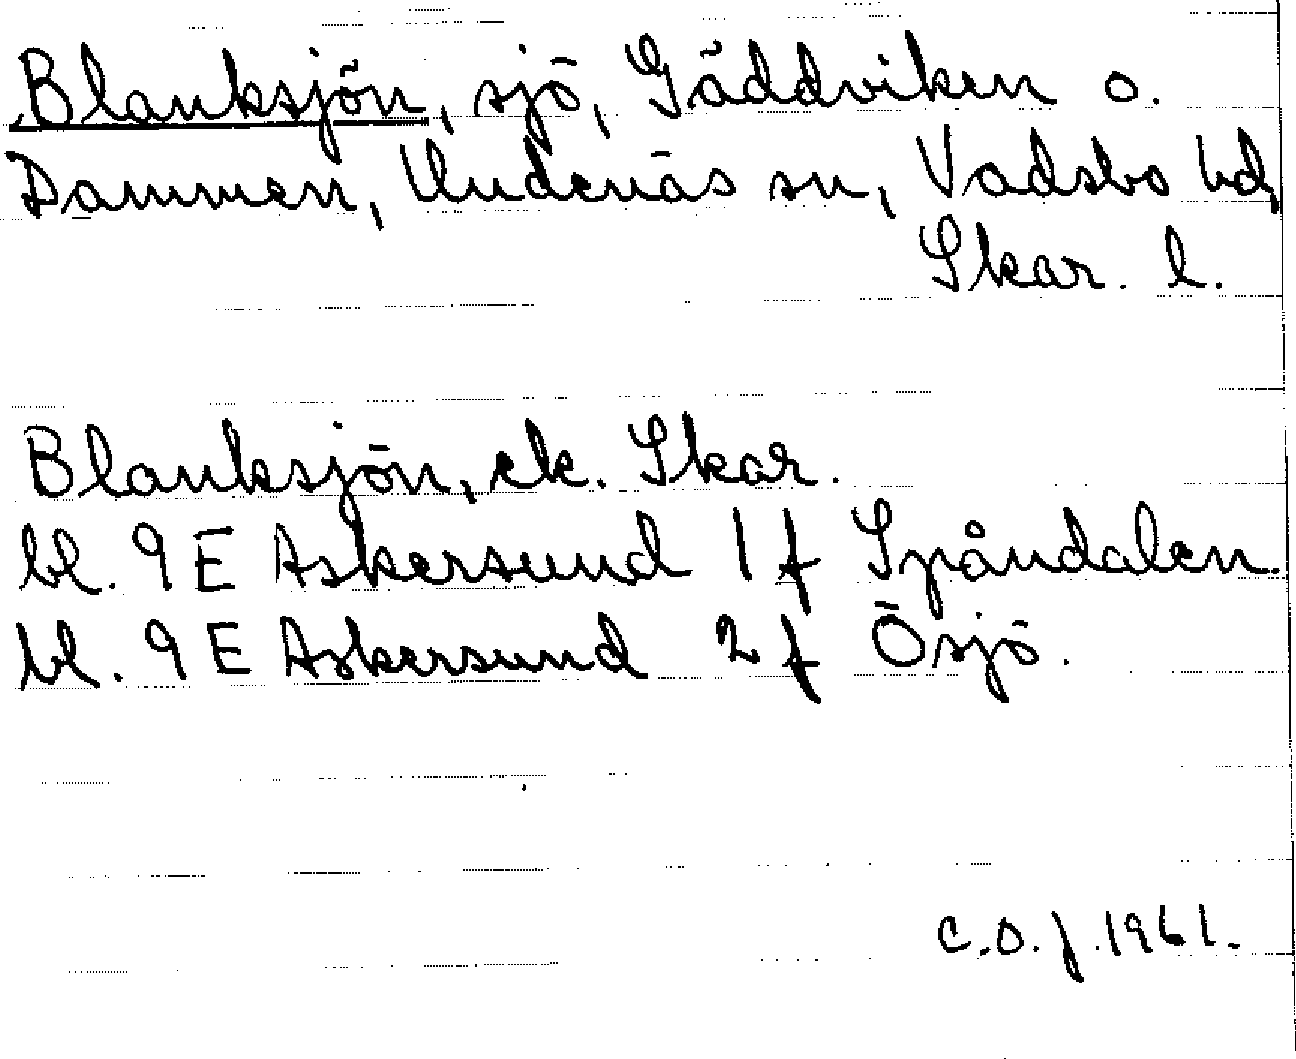 Blanksjön, sjö, Gäddviken o.
Dammen, Undenäs sn, Vadsbo hd,
Skar. l.
Blanksjön, ek. Skar.
bl. 9E Askersund 1f Spåndalen.
bl. 9E Askersund 2f Ösjö.
C.O.J. 1961.